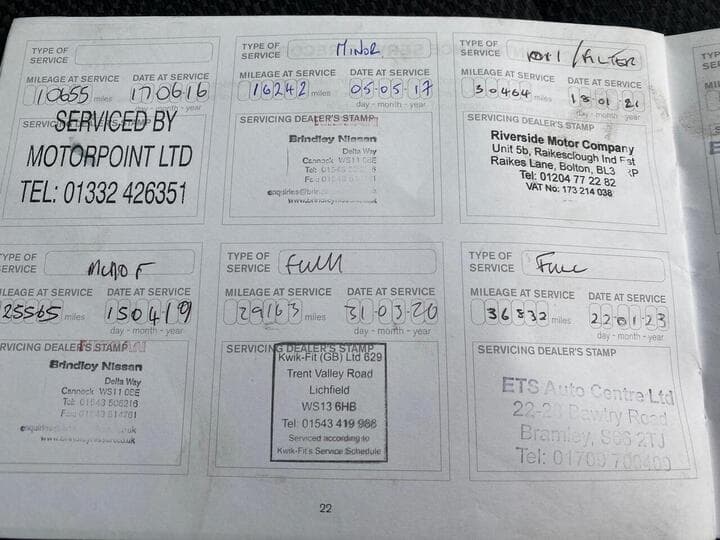 TYPE OF
SERVICE
MILEAGE AT SERVICE DATE AT SERVICE
10655 miles 17 06 16
day - month - year
SERVICED BY
MOTORPOINT LTD
TEL: 01332 426351
TYPE OF
SERVICE MINOR
MILEAGE AT SERVICE DATE AT SERVICE
16242 miles 05 05 17
day - month - year
SERVICING DEALER'S STAMP
Brindley Nissan
Delta Way
Cannock WS11 0BE
Tel: 01543
Fax: 01543
enquiries@
TYPE OF
SERVICE OIL/FILTER
MILEAGE AT SERVICE DATE AT SERVICE
30464 miles 18 01 21
day - month - year
SERVICING DEALER'S STAMP
Riverside Motor Company
Unit 5b, Raikesclough Ind Est
Raikes Lane, Bolton, BL3 RP
Tel: 01204 77 22 82
VAT No: 173 214 038
TYPE OF
SERVICE
MILEAGE AT SERVICE DATE AT SERVICE
25565 miles 15 04 19
day - month - year
RVICING DEALER'S STAMP
Brindley Nissan
Delta Way
Cannock WS11 0BE
Tel: 01543 506216
Fax: 01543
TYPE OF
SERVICE Full
MILEAGE AT SERVICE DATE AT SERVICE
29163 miles 31 03 20
day - month - year
SERVICING DEALER'S STAMP
Kwik-Fit (GB) Ltd 629
Trent Valley Road
Lichfield
WS13 6HB
Tel: 01543 419 986
Serviced according to
Kwik-Fit's Service Schedule
TYPE OF
SERVICE Full
MILEAGE AT SERVICE DATE AT SERVICE
36332 miles 22 01 23
day - month - year
SERVICING DEALER'S STAMP
ETS Auto Centre Ltd
22-26 Bawtry Road
Bramley, S66 2TJ
Tel: 01709 700400
22